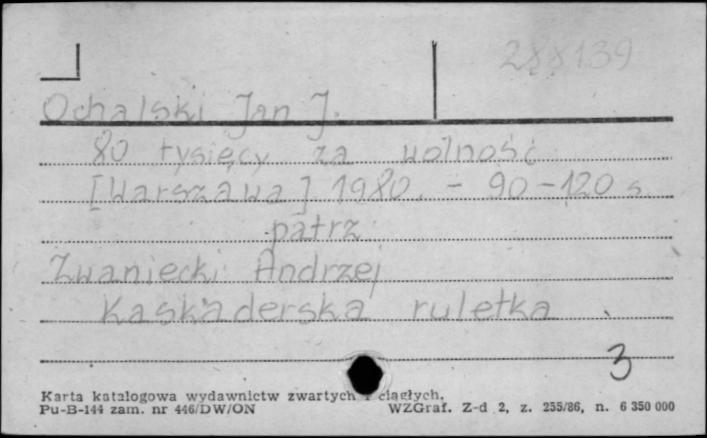 288139
Ochalski Jan J.
80 tysięcy za wolność
[Warszawa] 1980. - 90-120 s.
patrz
Zwaniecki Andrzej
Kaskaderska ruletka
3
Karta katalogowa wydawnictw zwartych i ciągłych.
Pu-B-144 zam. nr 446/DW/ON WZGraf. Z-d 2, z. 255/86, n. 6 350 000